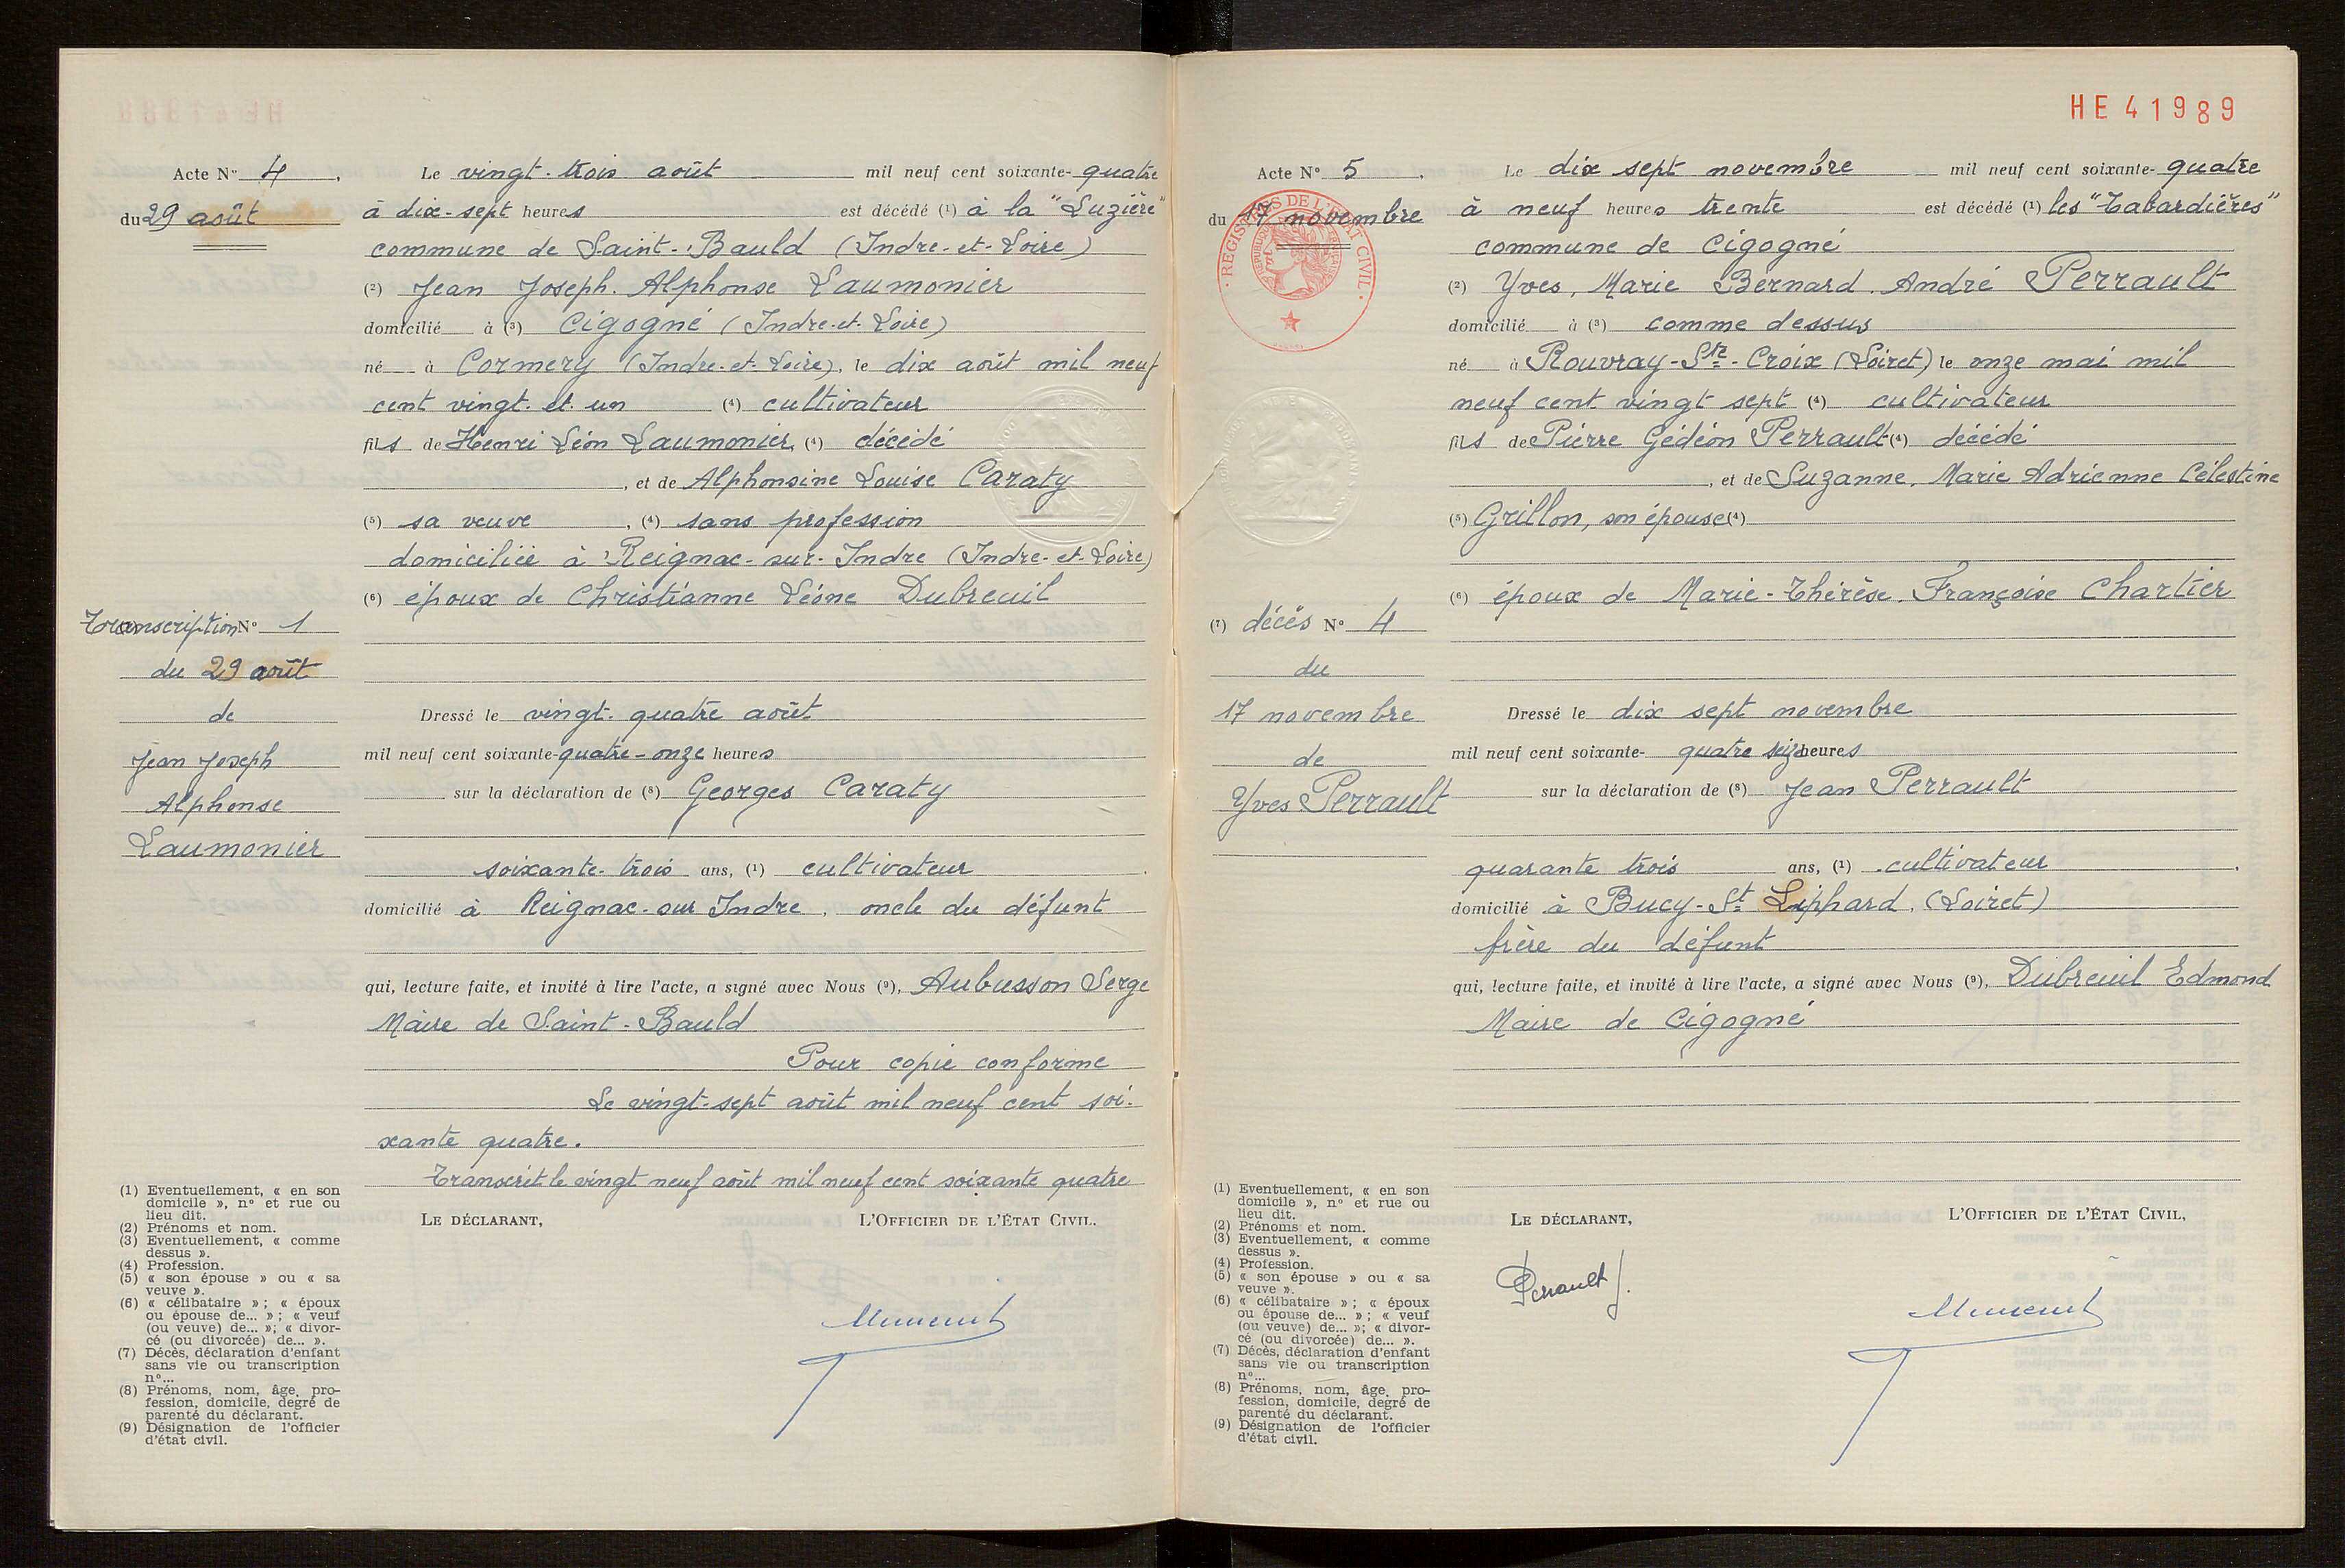 Acte N° 4.
du 29 août
Le vingt-trois août mil neuf cent soixante-quatre
à dix-sept heures est décédé (1) à la "Luzière"
commune de Saint-Bauld (Indre-et-Loire)
(2) Jean Joseph Alphonse Laumonier
domicilié à (3) Cigogné (Indre-et-Loire)
né à Cormery (Indre-et-Loire), le dix août mil neuf
cent vingt-et-un (4) cultivateur
fils de Henri Léon Laumonier, (4) décédé
, et de Alphonsine Louise Caraty
(5) sa veuve, (4) sans profession
domiciliée à Reignac-sur-Indre (Indre-et-Loire)
(6) époux de Christianne Léone Dubreuil
Transcription N° 1
du 29 août
de
Jean Joseph
Alphonse
Laumonier
Dressé le vingt-quatre août
mil neuf cent soixante-quatre - onze heures
sur la déclaration de (8) Georges Caraty
soixante-trois ans, (1) cultivateur
domicilié à Reignac-sur Indre, oncle du défunt
qui, lecture faite, et invité à lire l'acte, a signé avec Nous (9), Aubusson Serge
Maire de Saint-Bauld
Pour copie conforme
Le vingt-sept août mil neuf cent soi-
xante quatre.
Transcrit le vingt neuf août mil neuf cent soixante quatre
LE DÉCLARANT, L'OFFICIER DE L'ÉTAT CIVIL.
(1) Eventuellement, « en son
domicile », n° et rue ou
lieu dit.
(2) Prénoms et nom.
(3) Eventuellement, « comme
dessus ».
(4) Profession.
(5) « son épouse » ou « sa
veuve ».
(6) « célibataire » ; « époux
ou épouse de... » ; « veuf
(ou veuve) de... »; « divor-
cé (ou divorcée) de... ».
(7) Décès, déclaration d'enfant
sans vie ou transcription
n°...
(8) Prénoms, nom, âge, pro-
fession, domicile, degré de
parenté du déclarant.
(9) Désignation de l'officier
d'état civil.
HE 41989
Acte N° 5.
du 17 novembre
REGISTRES DE L'ÉTAT CIVIL
Le dix sept novembre mil neuf cent soixante-quatre
à neuf heures trente est décédé (1) les "Tabardières"
commune de Cigogné
(2) Yves, Marie Bernard André Perrault
domicilié à (3) comme dessus
né à Rouvray-Ste-Croix (Loiret) le onze mai mil
neuf cent vingt sept (4) cultivateur
fils de Pierre Gédéon Perrault (4) décédé
, et de Suzanne, Marie Adrienne Célestine
(5) Grillon, son épouse (4)
(6) époux de Marie-Thérèse, Françoise Chartier
(7) décès N° 4
du
17 novembre
de
Yves Perrault
Dressé le dix sept novembre
mil neuf cent soixante- quatre seize heures
sur la déclaration de (8) Jean Perrault
quarante trois ans, (1) cultivateur
domicilié à Bucy-St Liphard, (Loiret)
frère du défunt
qui, lecture faite, et invité à lire l'acte, a signé avec Nous (9), Dubreuil Edmond
Maire de Cigogné
LE DÉCLARANT, L'OFFICIER DE L'ÉTAT CIVIL,
Perrault J.
(1) Eventuellement, « en son
domicile », n° et rue ou
lieu dit.
(2) Prénoms et nom.
(3) Eventuellement, « comme
dessus ».
(4) Profession.
(5) « son épouse » ou « sa
veuve ».
(6) « célibataire » ; « époux
ou épouse de... » ; « veuf
(ou veuve) de... »; « divor-
cé (ou divorcée) de... ».
(7) Décès, déclaration d'enfant
sans vie ou transcription
n°...
(8) Prénoms, nom, âge, pro-
fession, domicile, degré de
parenté du déclarant.
(9) Désignation de l'officier
d'état civil.